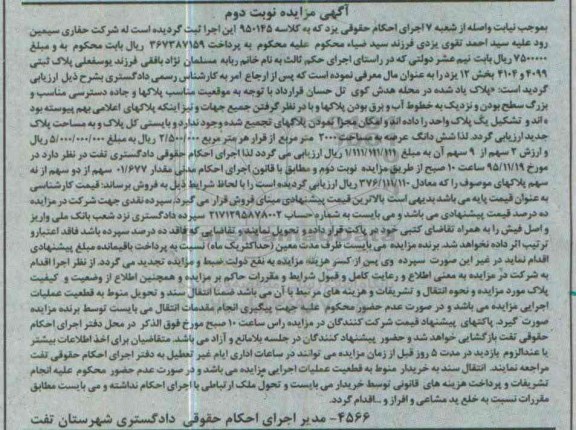 آگهی مزایده نوبت دوم
بموجب نیابت واصله از شعبه ۷ اجرای احکام حقوقی یزد که به کلاسه ۹۵۰۱۴۵ این اجرا ثبت گردیده است له شرکت حفاری سیمین
رود علیه سید احمد تقوی یزدی فرزند سید ضیاء محکوم علیه محکوم به پرداخت ۳۶۷۳۸۷۱۵۹ ریال بابت محکوم به و مبلغ
۷۵۰۰۰۰۰ ریال بابت نیم عشر دولتی که در راستای اجرای حکم ثالث به نام خانم ربابه مسلمان نژاد بافقی فرزند یوسفعلی پلاک ثبتی
۴۰۹۹ و ۴۱۰۴ بخش ۱۲ یزد را به عنوان مال معرفی نموده است که پس از ارجاع امر به کارشناس رسمی دادگستری بشرح ذیل ارزیابی
گردیده است: «پلاک یاد شده در محله هدش کوی تل حسان قرارداد با توجه به موقعیت مناسب پلاکها و جاده دسترسی مناسب و
بزرگ سطح بودن و نزدیک به خطوط آب و برق بودن پلاکها و با در نظر گرفتن جمیع جهات و نیز اینکه پلاکهای اعلامی بهم پیوسته بود
ه اند و تشکیل یک پلاک واحد را داده اند و امکان مجزا نمودن پلاکهای تجمیع شده وجود ندارد و بایستی کل پلاک و به مساحت پلاک
جدید ارزیابی گردد. لذا شش دانگ عرصه به مساحت ۲۰۰۰ متر مربع از قرار هر متر مربع ۲/۵۰۰/۰۰۰ ریال به مبلغ ۵/۰۰۰/۰۰۰/۰۰۰ ریال
و ارزش ۲ سهم از ۹ سهم آن به مبلغ ۱/۱۱۱/۱۱۱/۱۱۱ ریال ارزیابی می گردد لذا اجرای احکام حقوقی دادگستری تفت در نظر دارد در
مورخ ۹۵/۱۱/۱۹ ساعت ۱۰ صبح از طریق مزایده نوبت دوم و مطابق با قانون اجرای احکام مدنی مقدار ۰/۶۷۷ سهم از دو سهم از نه
سهم پلاکهای موصوف را که معادل ۳۷۶/۱۱۱/۱۱۰ ریال ارزیابی گردیده است را با لحاظ شرایط ذیل به فروش برساند: قیمت کارشناسی
به عنوان قیمت پایه می باشد بدیهی است بالاترین قیمت پیشنهادی مبنای فروش قرار می گیرد. سپرده نقدی جهت شرکت در مزایده
ده درصد قیمت پیشنهادی می باشد و می بایست به شماره حساب ۲۱۷۱۲۹۵۸۷۸۰۰۲ سپرده دادگستری نزد شعب بانک ملی واریز
و اصل فیش را به همراه تقاضای کتبی خود در پاکت قرار داده و تحویل نمایند و تقاضایی که فاقد ده درصد سپرده باشد فاقد اعتبار و
ترتیب اثر داده نخواهد شد. برنده مزایده می بایست ظرف مدت معین (حداکثر یک ماه) نسبت به پرداخت باقیمانده مبلغ پیشنهادی
اقدام نماید در غیر این صورت سپرده وی پس از کسر هزینه مزایده به نفع دولت ضبط و مزایده تجدید می گردد. از نظر اجرا اقدام
به شرکت در مزایده به معنی اطلاع و رعایت کامل و قبول شرایط و مقررات حاکم بر مزایده و همچنین اطلاع از وضعیت و کیفیت
پلاک مورد مزایده و نحوه انتقال و تشریفات و هزینه های مرتبط با آن می باشد ضمنا انتقال سند و تحویل منوط به قطعیت عملیات
اجرایی مزایده می باشد و در صورت عدم حضور محکوم علیه جهت پیگیری انجام مقدمات انتقال می بایست توسط برنده مزایده
صورت گیرد. پاکتهای پیشنهاد قیمت شرکت کنندگان در مزایده راس ساعت ۱۰ صبح مورخ فوق الذکر در محل دفتر اجرای احکام
حقوقی تفت بازگشایی خواهد شد و حضور پیشنهاد کنندگان در جلسه بلامانع و آزاد می باشد. متقاضیان برای اخذ اطلاعات بیشتر
یا عندالزوم بازدید در مدت ۵ روز قبل از زمان مزایده می توانند در ساعات اداری ایام غیر تعطیل به دفتر اجرای احکام حقوقی تفت
مراجعه نمایند. انتقال سند به خریدار منوط به قطعیت عملیات اجرایی مزایده می باشد و در صورت عدم حضور محکوم علیه انجام
تشریفات و پرداخت هزینه های قانونی توسط خریدار می بایست و تحویل ملک ارتباطی با اجرای احکام نداشته و می بایست مطابق
مقررات نسبت به خلع ید مشاعی و افراز و ...اقدام گردد.
۴۵۶۶- مدیر اجرای احکام حقوقی دادگستری شهرستان تفت